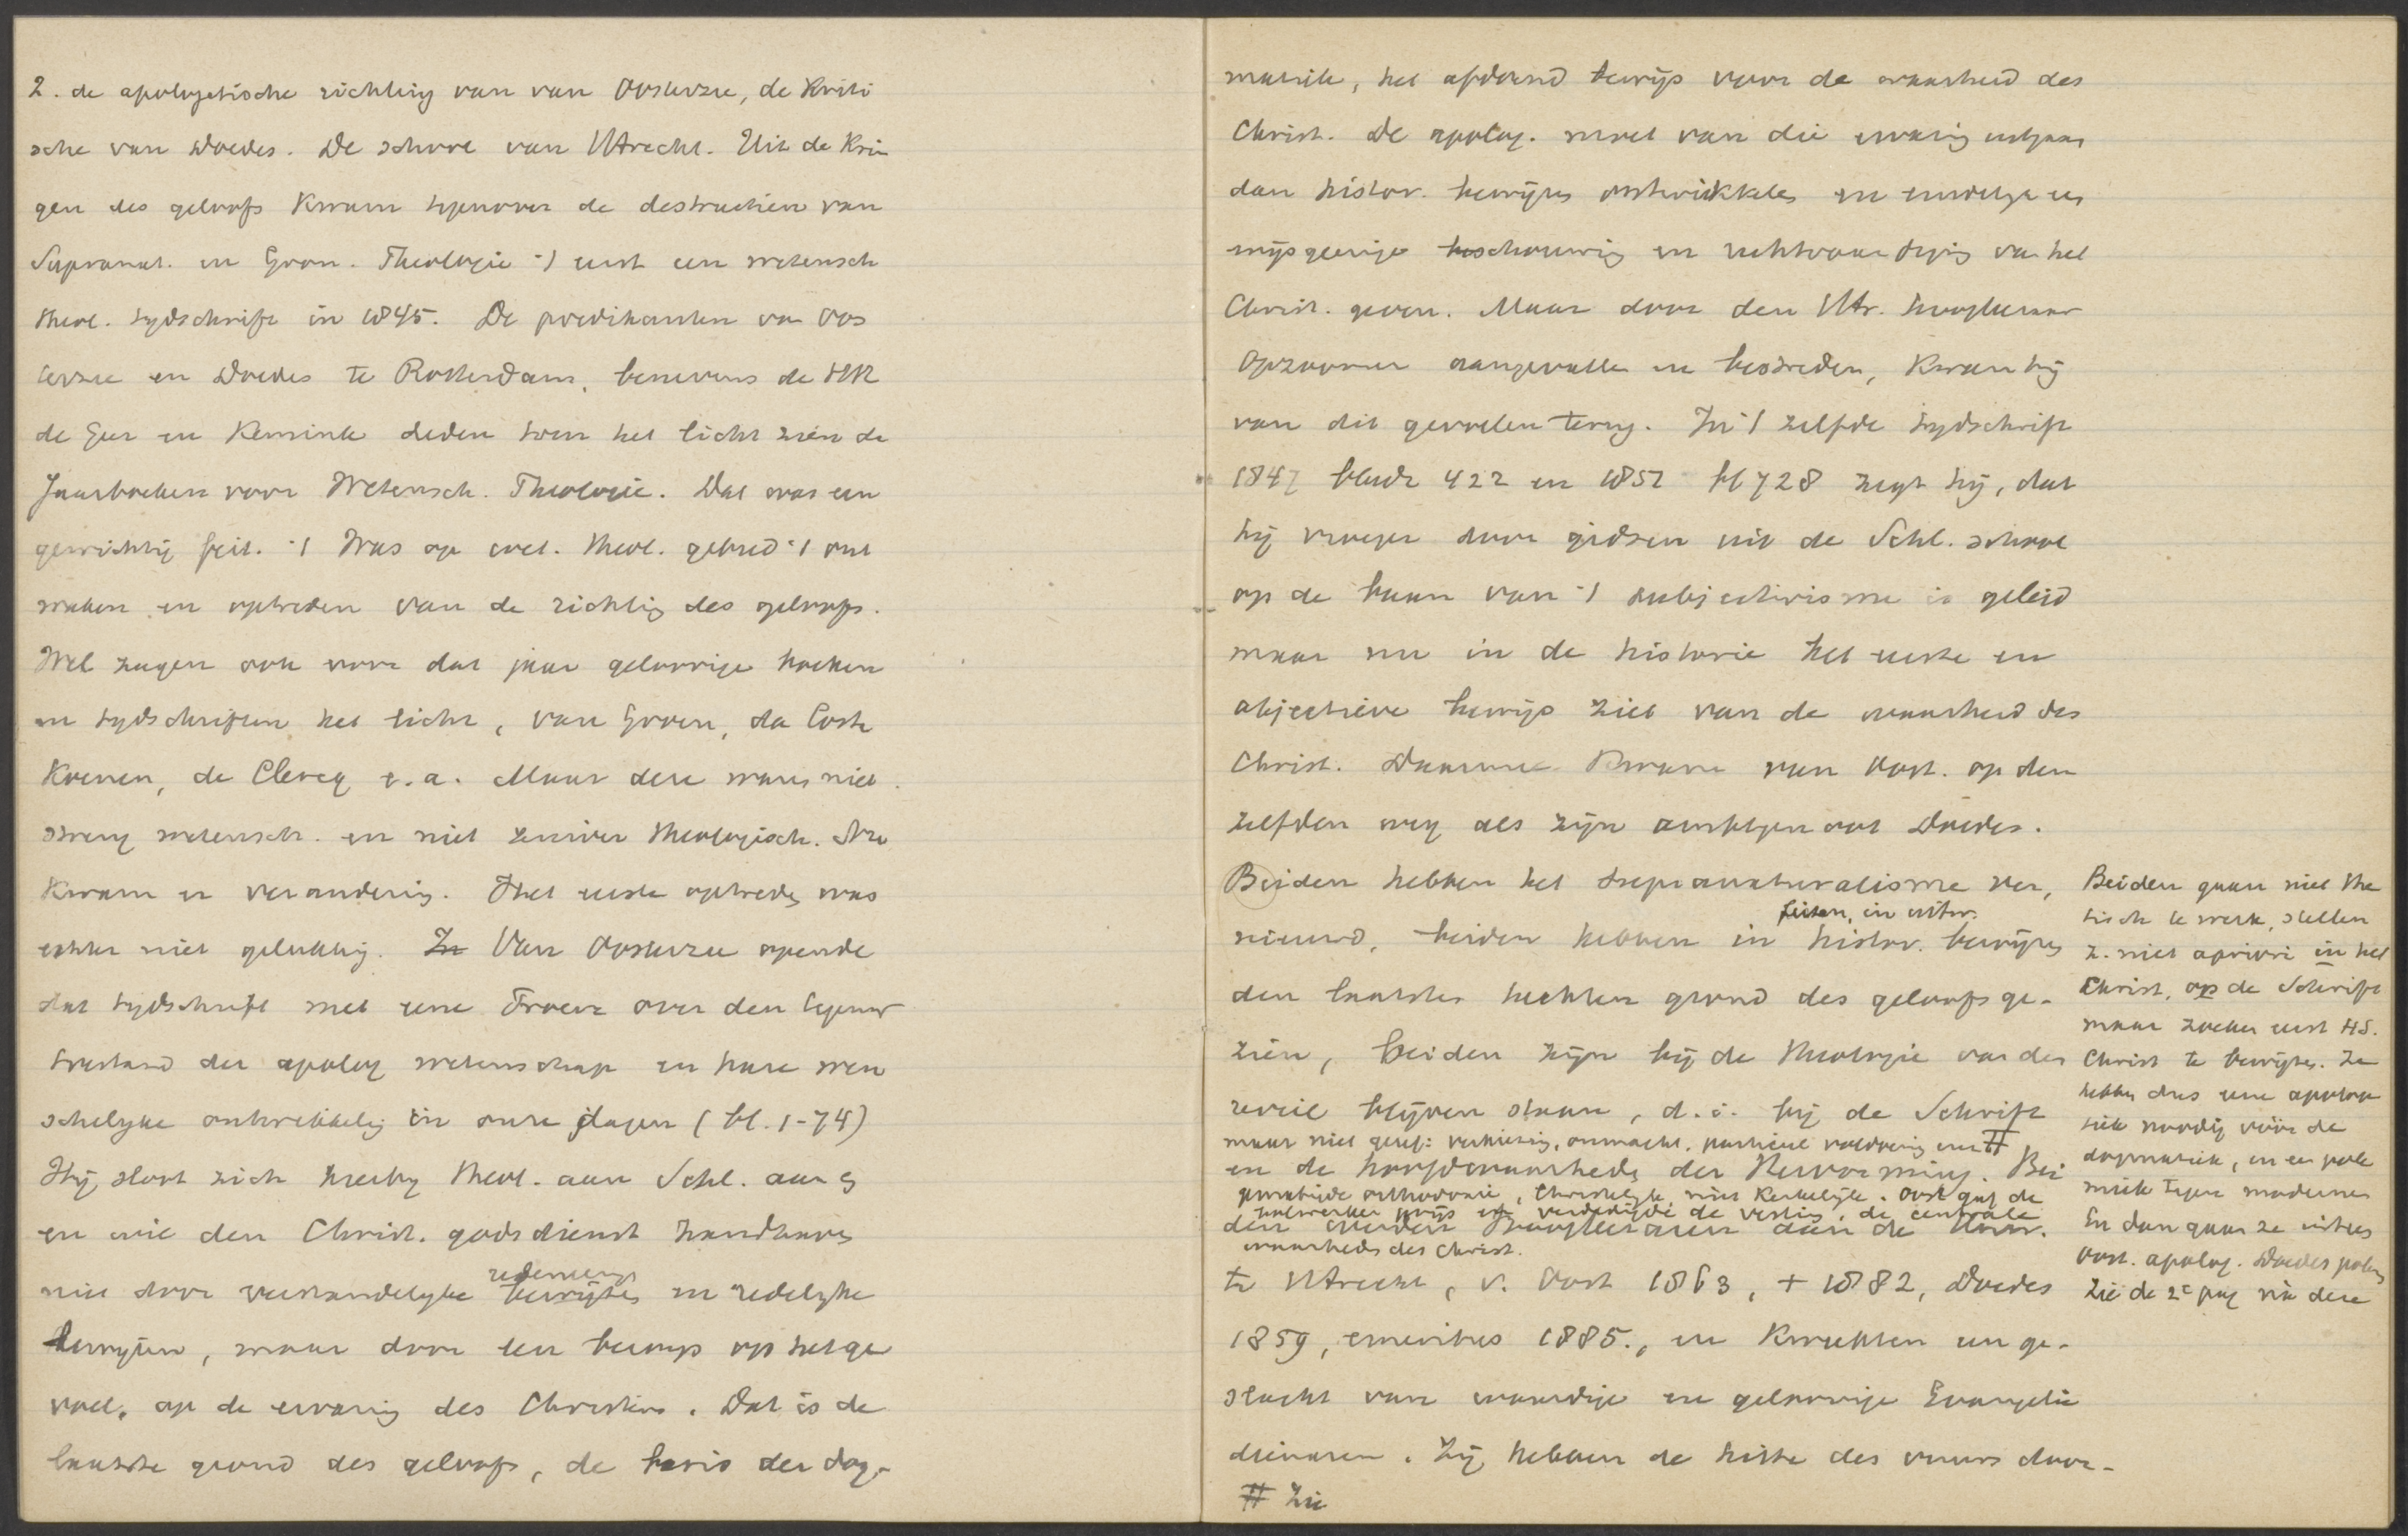 2. de apologetische richting van van Oosterzee, de Kriti
sche van Doedes. De school van Utrecht. Uit de Krin
gen des geloofs Kwam tegenover de destructieve van
Supranat. en Gron. Theologie 't eerst een wetensch
theol. tydschrift in 1845. De predikanten van Oos
terzee en Doedes te Rotterdam, benevens de HH
de Geer en Kemink deden toen het licht zien de
Jaarboeken voor Wetensch. Theologie. Dat was een
gewichtig feit. 't Was op wet. theol. gebied 't ont
waken en optreden van de richting des geloofs.
Wel zagen ook voor dat jaar geloovige boeken
en tydschriften het licht, van Groen, da Costa
Koenen, de Clercq e.a. Maar deze waren niet
streng wetensch. en niet zuiver theologisch. Nu
Kwam er verandering. Het eerste optreden was
echter niet gelukkig. In Van Oosterzee opende
dat tydschrift met eene Proeve over den tegenw
toestand der apolog wetenschap en hare wen
schelyke ontwikkeling in onze dagen (bl. 1-74)
Hij sloot zich hierby theol. aan Schl. aan
en wil den Christ. godsdienst handhaven
niet door verstandelyke bewijzen redeneering en redelyke
bewijzen, maar door een beroep op het ge
voel, op de ervaring des Christens. Dat is de
laatste grond des geloofs, de basis der dog-
matiek, het afdoend bewijs voor de waarheid des
Christ. De apolog. moet van die ervaring uitgaan
dan histor. bewijzen ontwikkelen en eindelyk een
wijsgeerige beschouwing en rechtvaardiging van het
Christ. geven. Maar door den Utr. hoogleeraar
Opzoomer aangevallen en bestreden, Kwam hij
van dit gevoelen terug. In 't zelfde tydschrift
1847 bladz 422 en 1851 bl 728 zegt hij, dat
hij vroeger door gidsen uit de Schl. school
op de baan van 't subjectivisme is geleid
maar nu in de historie het eerste en
objectieve bewijs ziet van de waarheid des
Christ. Daarmee Kwam van Oost. op den
zelfden weg als zijn ambtgenoot Doedes.
Beiden hebben het supranaturalisme ver,
feiten, in uitw.
nieuwd, beiden hebben in histor. bewijzen
den laatsten hechten grond des geloofs ge-
zien, beiden zijn bij de theologie van den
reveil blijven staan, d.i. bij de Schrift
maar niet geref: verkiezing, onmacht, particul voldoening enz #
en de hoofdwaarheden der Hervorming. Bei
gematigde orthodoxie, Christelyk, niet Kerkelijk. Oost gaf de
buitenwerken prijs en verdedigde de vesting, de centrale
den werden hoogleeraren aan de Univ.
waarheden des Christ.
te Utrecht, v. Oost 1863, + 1882, Doedes
1859, emeritus 1885., en Kweekten een ge-
slacht van waardige en geloovige Evangelie
dienaren. Zij hebben de hitte des vuurs door-
# Zie
Beiden gaan niet the
tisch te werk, stellen
z. niet apriori in het
Christ, op de Schrift
maar zoeken eerst HS.
Christ te bewijzen. Ze
hebben dus eene apologe
tiek noodig vóór de
dogmatiek, en een pole
miek tegen modernen
En dan gaan ze uiteen
Oost. apolog. Doedes polem
Zie de 2e pag na deze